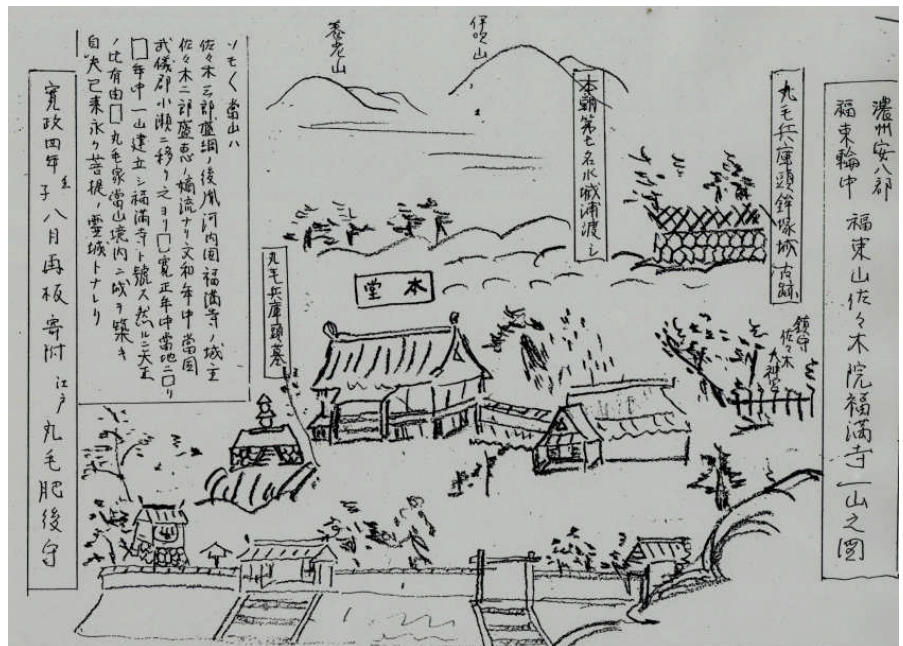 濃州安八郡
福束輪中 福束山佐々木院福満寺一山之圖
丸毛兵庫頭鉾塚城古跡
鎮守
佐々木
大神宮
本朝第七名水城浦渡シ
伊吹山
養老山
本堂
丸毛兵庫頭墓
ソモ〱當山ハ
佐々木三郎盛綱ノ後胤河内国福満寺ノ城主
佐々木二郎盛恵ノ嫡流ナリ文和年中當国
武儀郡小瀬ニ移リ之ヨリ□寛正年中當地ニ□リ
□年中一山建立シ福満寺ト號ス然ルニ天正
ノ比有由□丸毛家當山境内ニ城ヲ築キ
自夫已来永ク菩提ノ霊城トナレリ
寛政四年子八月再板寄附 江戸 丸毛肥後守